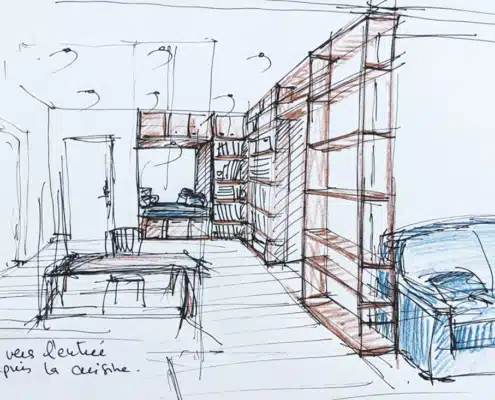 vers l'entrée
près la cuisine.